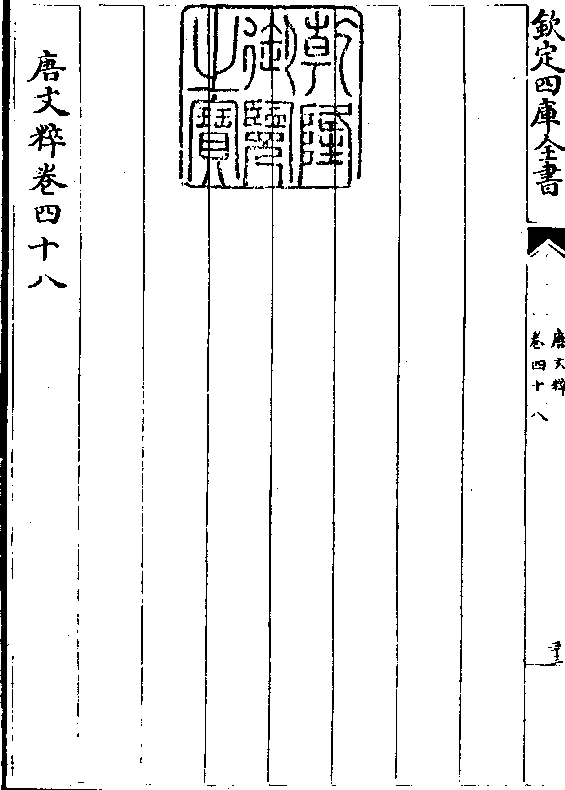 欽定四庫全書
唐文粹
卷四十八
乾隆
御覽
之寶
唐文粹卷四十八